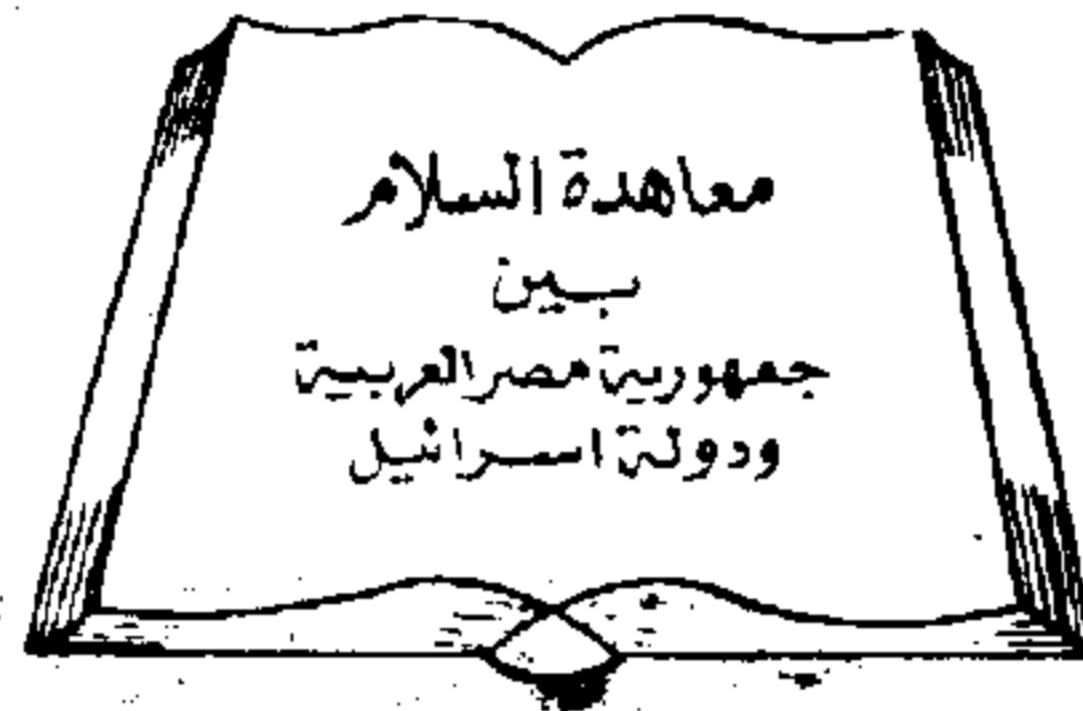 معاهدة السلام
بين
جمهورية مصر العربية
ودولة اسرائيل